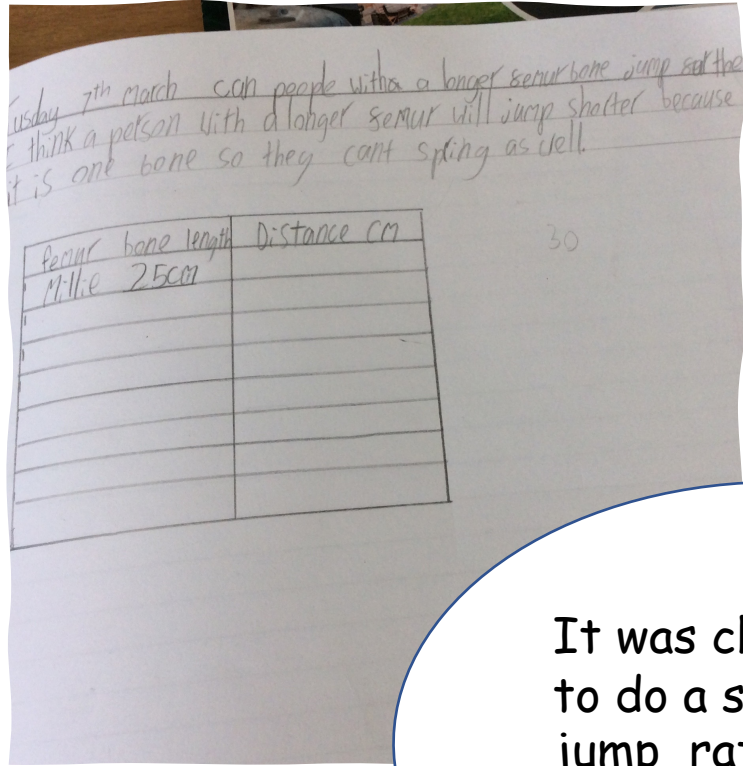 usday 7th March can people with a longer femur bone jump further
I think a person with a longer femur will jump shorter because
it is one bone so they cant spring as well.
femur bone length Distance cm
Millie 25cm
30
It was cl
to do a s
jump rat